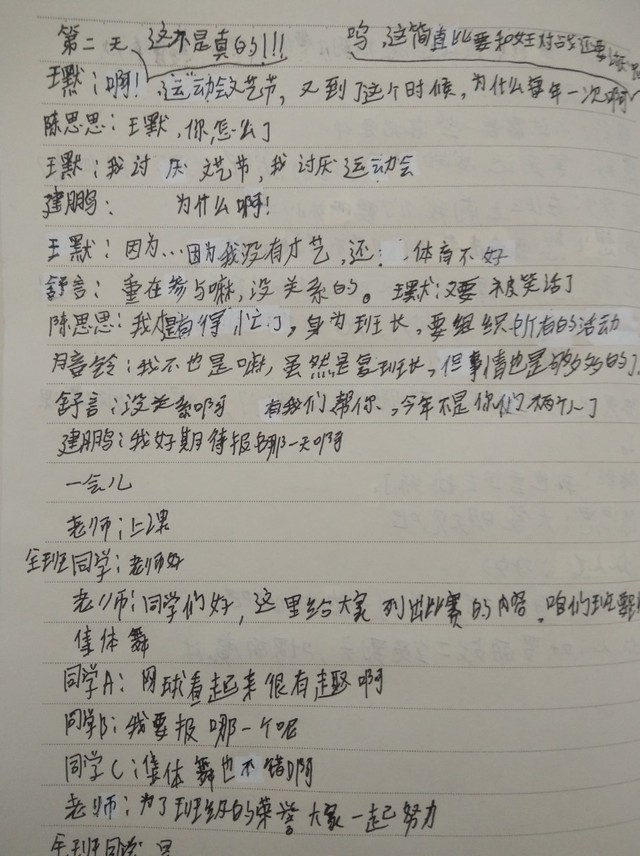 第二天 这不是真的!!! 呜,这简直比要和女王对占还要
王默:啊!运动会文艺节,又到了这个时候,为什么每年一次啊
陈思思:王默,你怎么了
王默:我讨厌文艺节,我讨厌运动会
建鹏: 为什么啊!
王默:因为…因为我没有才艺,还: 体育不好
舒言:重在参与嘛,没关系的。王默:又要被笑话了
陈思思:我才得忙了,身为班长,要组织所有的活动
月言铃:我不也是嘛,虽然是复班长,但事情也是够多的了
舒言:没关系啊 有我们帮你,今年不是你们俩个了
建鹏:我好期待报名那一天啊
一会儿
老师:上课
全班同学:老师好
老师:同学们好,这里给大家列出比赛的内容.咱们班要
集体舞
同学A:网球看起来很有趣啊
同学B:我要报哪一个呢
同学C:集体舞也不错啊
老师:为了班级的荣誉大家一起努力
全班同学 是